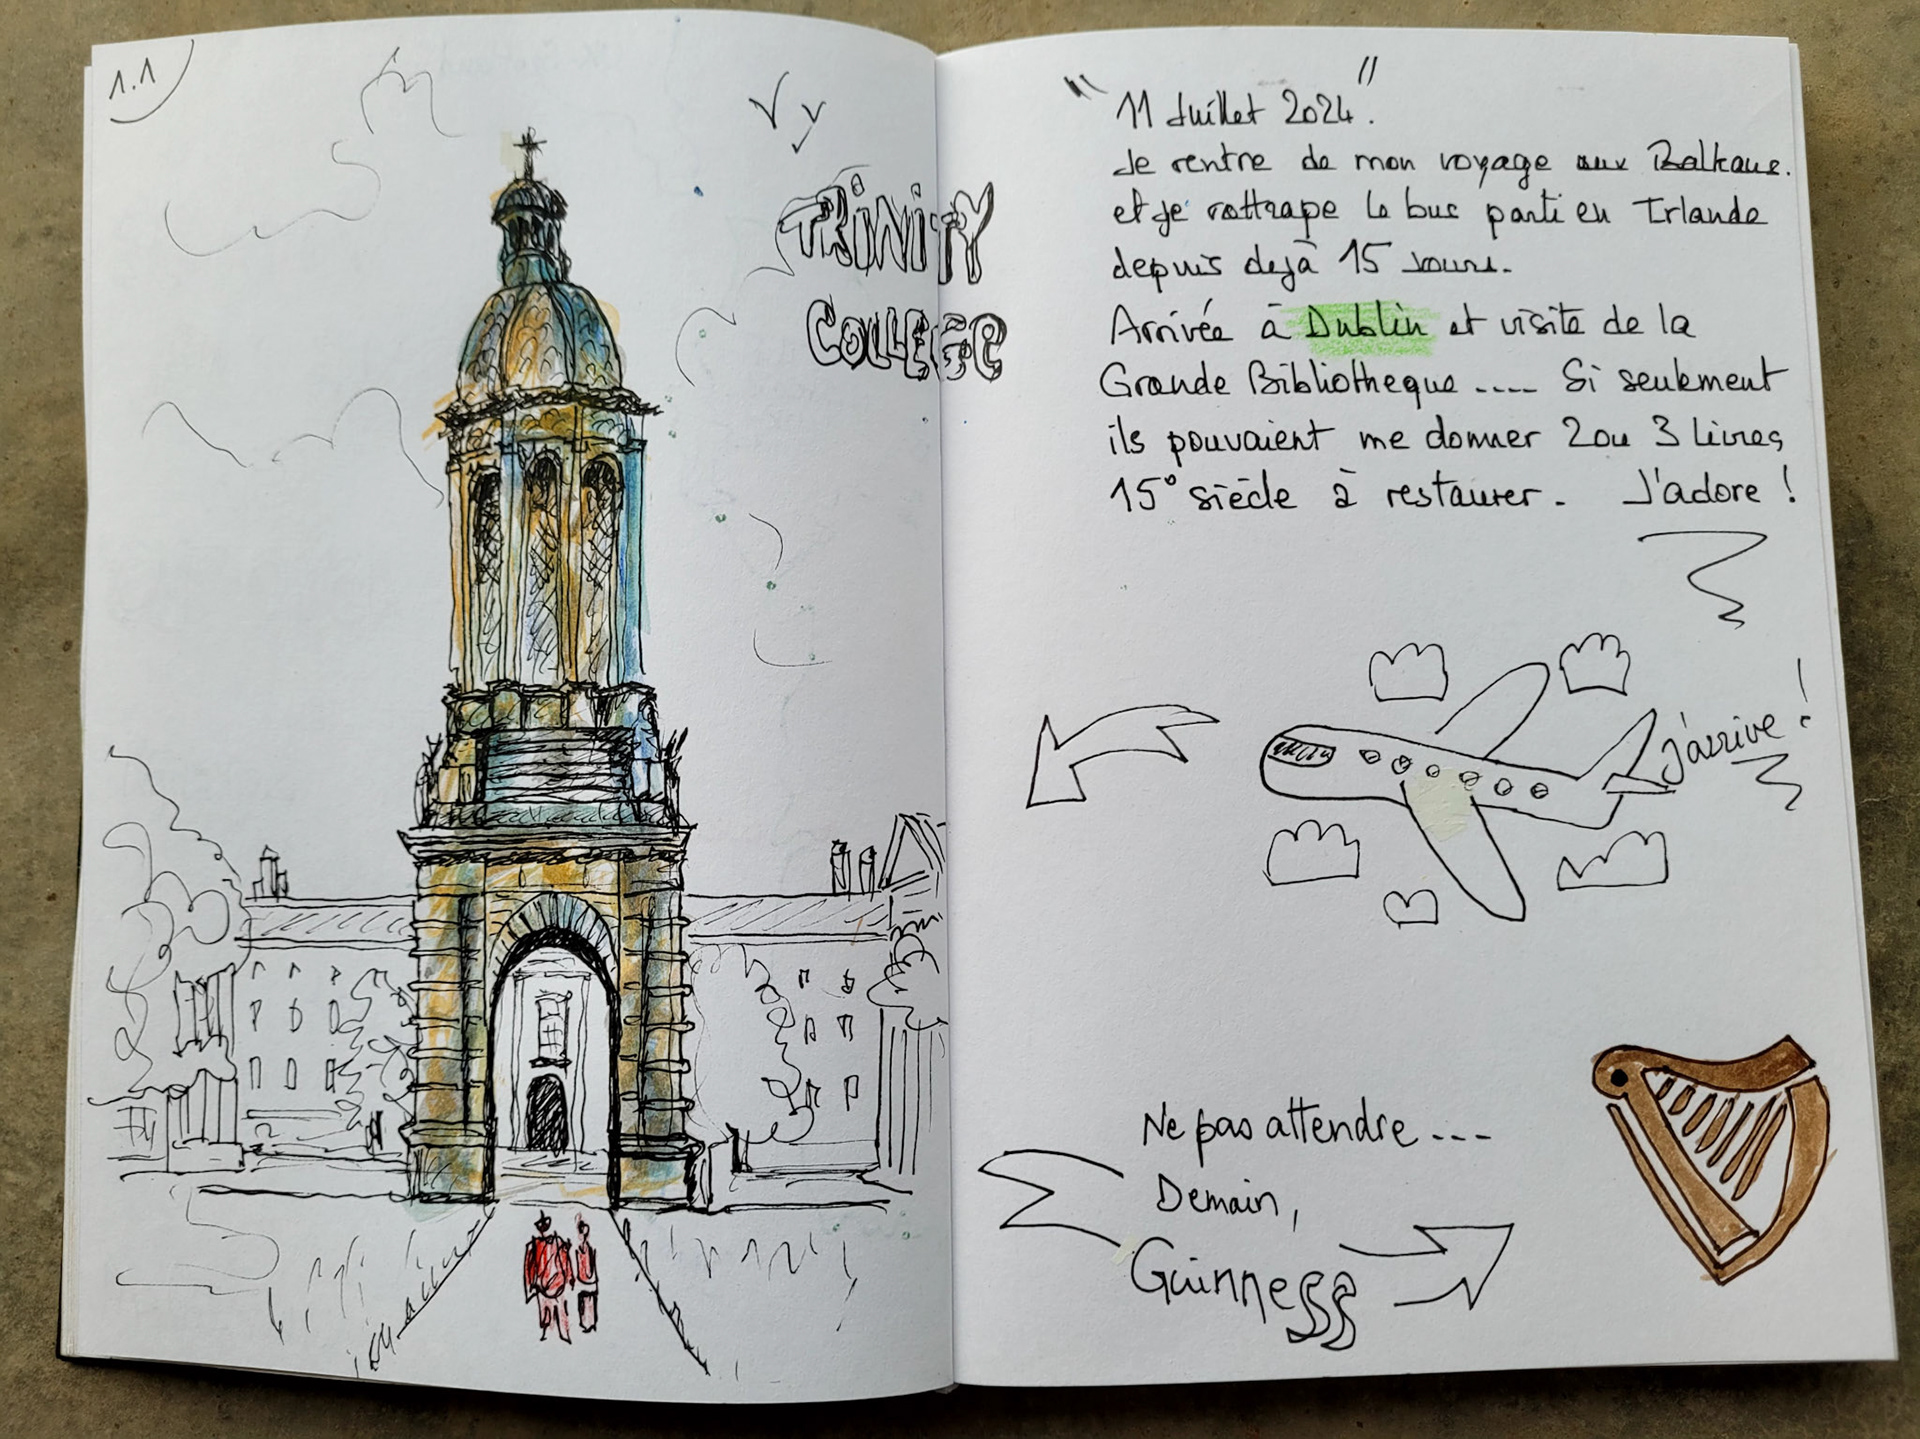 1.1
TRINITY
COLLEGE
" 11 Juillet 2024 ".
Je rentre de mon voyage aux Balkans.
et je rattrape le bus parti en Irlande
depuis dejà 15 Jours.
Arrivée à Dublin et visite de la
Grande Bibliotheque .... Si seulement
ils pouvaient me donner 2 ou 3 livres
15° siècle à restaurer. J'adore !
J'arrive !
Ne pas attendre ...
Demain,
Guinness